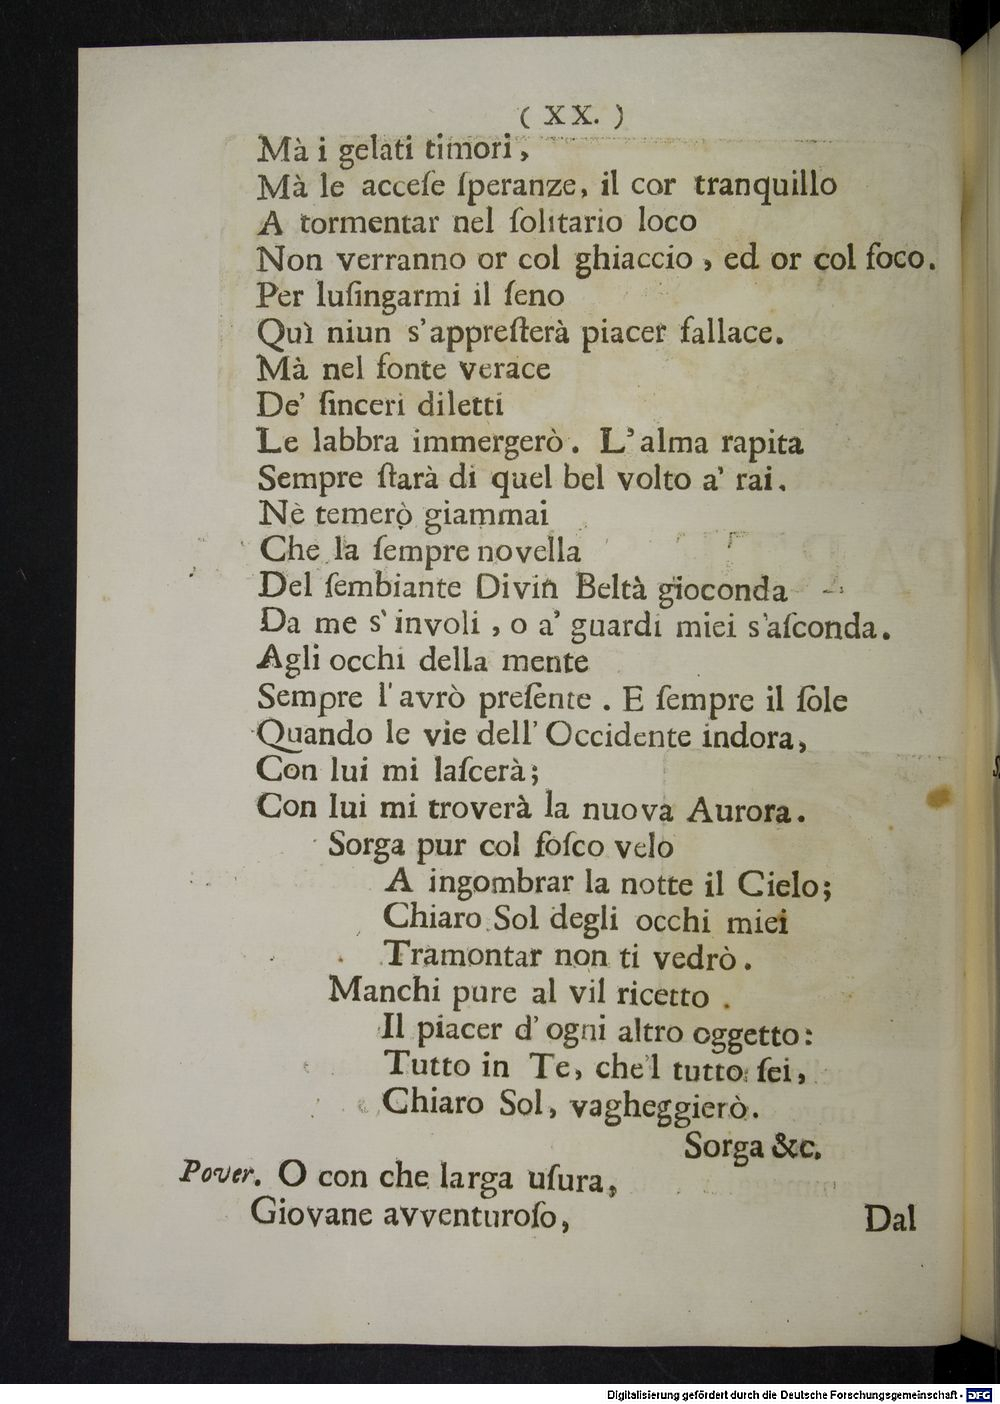 ( XX. )
Mà i gelati timori,
Mà le acceſe ſperanze, il cor tranquillo
A tormentar nel ſolitario loco
Non verranno or col ghiaccio, ed or col foco.
Per luſingarmi il ſeno
Quì niun s'appreſterà piacer fallace.
Mà nel fonte verace
De' ſinceri diletti
Le labbra immergerò. L'alma rapita
Sempre ſtarà di quel bel volto a' rai.
Nè temerò giammai
Che la ſempre novella
Del ſembiante Divin Beltà gioconda
Da me s'involi, o a' guardi miei s'aſconda.
Agli occhi della mente
Sempre l'avrò preſente. E ſempre il ſole
Quando le vie dell'Occidente indora,
Con lui mi laſcerà;
Con lui mi troverà la nuova Aurora.
Sorga pur col foſco velo
A ingombrar la notte il Cielo;
Chiaro Sol degli occhi miei
Tramontar non ti vedrò.
Manchi pure al vil ricetto
Il piacer d'ogni altro oggetto:
Tutto in Te, che'l tutto ſei,
Chiaro Sol, vagheggierò.
Sorga &c.
Pover. O con che larga uſura,
Giovane avventuroſo,
Dal
Digitalisierung gefördert durch die Deutsche Forschungsgemeinschaft - DFG